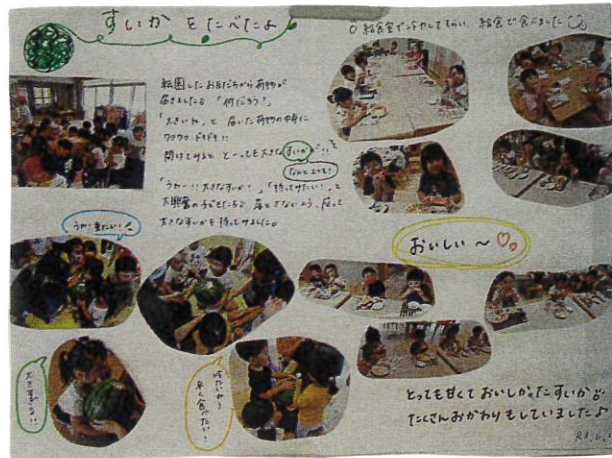 すいかをたべたよ
給食室で冷やしてもらい 給食で食べました
転園したお友だちから荷物が
届きました。「何だろう?」
「大きいね」と 届いた荷物の中身に
ワクワクドキドキ!!
開けてみると とーっても大きなすいかが!!
なんと2つも!
「うわー!!大きなすいか!」「持ってみたい!」と
大興奮の子どもたち♪ 落とさないよう、座って
大きなすいかを持ってみました。
うわ!重たい!
おいしい~
大きすぎる!!
冷たいね
早く食べたい!
とっても甘くて おいしかったすいか
たくさんおかわりもしていましたよ